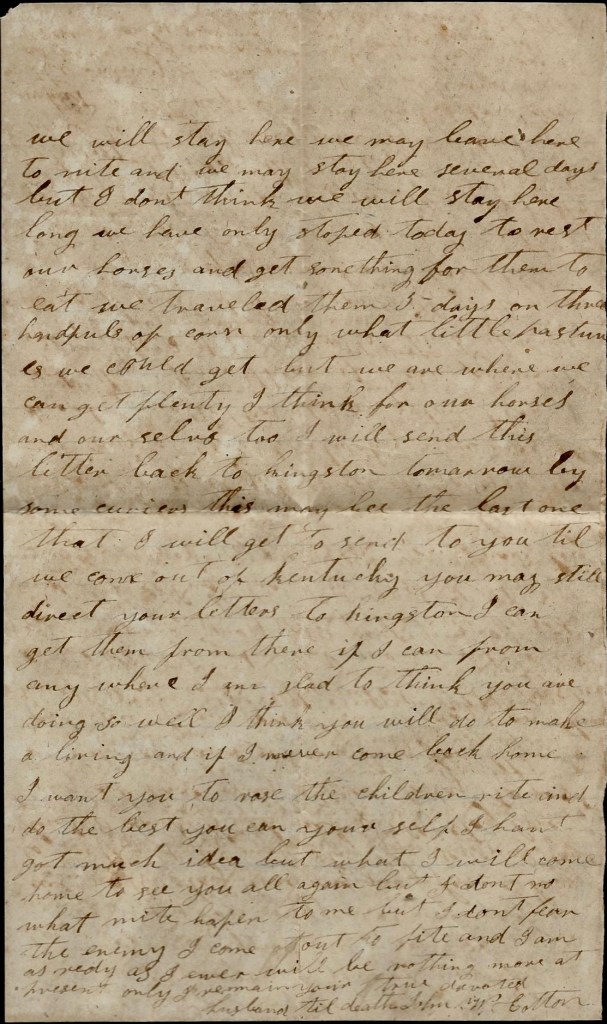 we will stay here we may leave here
to nite and we may stay here several days
but I dont think we will stay here
long we have only stoped today to rest
our horses and get something for them to
eat we traveled them 5 days on three
handfuls of corn only what little pastur
es we could get but we are where we
can get plenty I think for our horses
and our selvs too I will send this
letter back to kingston tomarrow by
some curiers this may bee the last one
that I will get to send to you til
we come out of kentucky you may still
direct your letters to kingston I can
get them from there if I can from
any where I am glad to think you are
doing so well I think you will do to make
a living and if I never come back home
I want you to rase the children rite and
do the best you can your self I hant
got much idea but what I will come
home to see you all again but I dont no
what mite hapen to me but I dont fear
the enemy I come out to fite and I am
as redy as I ever will be nothing more at
present only I remain your true devoted
husband til death John W Cotton